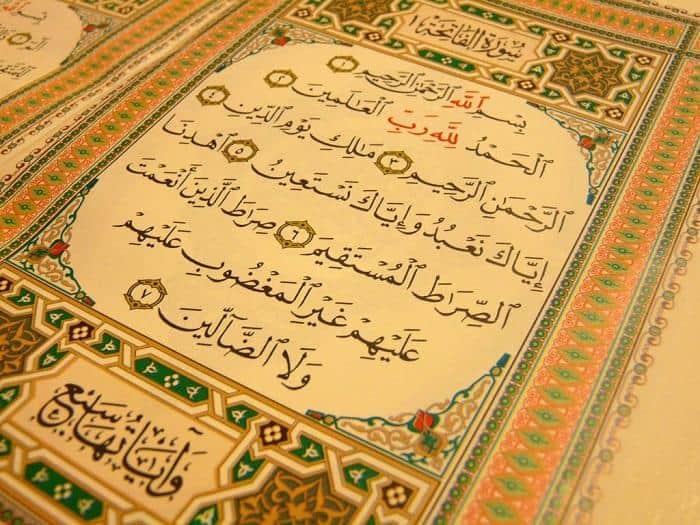 سُورَةُ الفَاتِحَةِ ١
بِسْمِ ٱللَّهِ ٱلرَّحْمَٰنِ ٱلرَّحِيمِ ١
ٱلْحَمْدُ لِلَّهِ رَبِّ ٱلْعَالَمِينَ ٢
ٱلرَّحْمَٰنِ ٱلرَّحِيمِ ٣ مَالِكِ يَوْمِ ٱلدِّينِ ٤
إِيَّاكَ نَعْبُدُ وَإِيَّاكَ نَسْتَعِينُ ٥ ٱهْدِنَا
ٱلصِّرَاطَ ٱلْمُسْتَقِيمَ ٦ صِرَاطَ ٱلَّذِينَ أَنْعَمْتَ
عَلَيْهِمْ غَيْرِ ٱلْمَغْضُوبِ عَلَيْهِمْ
وَلَا ٱلضَّالِّينَ ٧
وَآيَاتُهَا سَبْعٌ